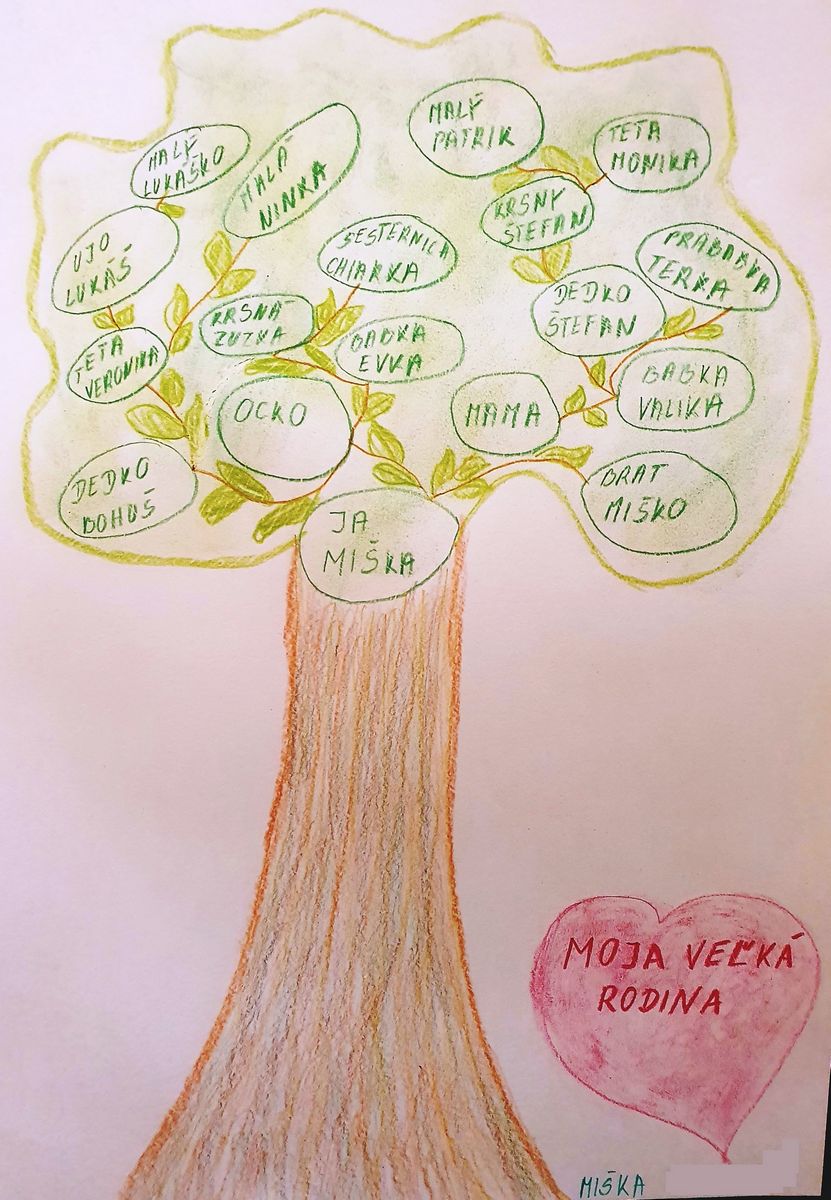 MALÝ
PATRIK
TETA
MONIKA
MALÝ
LUKÁŠKO
MALÁ
NINKA
KRSNÝ
ŠTEFAN
SESTERNICA
CHIARKA
PRABABKA
TERKA
UJO
LUKÁŠ
DEDKO
ŠTEFAN
KRSNÁ
ZUZKA
BABKA
EVKA
TETA
VERONIKA
BABKA
VALIKA
OCKO
MAMA
DEDKO
BOHUŠ
BRAT
MIŠKO
JA
MIŠKA
MOJA VEĽKÁ
RODINA
MIŠKA